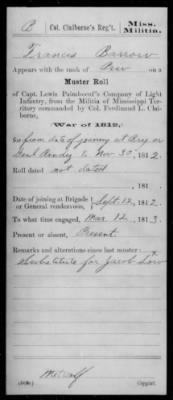 B | Col. Claiborne's Reg't. | Miss. Militia.
Francis Barrow
Appears with the rank of Priv on a
Muster Roll
of Capt. Lewis Paimboeuf's Company of Light
Infantry, from the Militia of Mississippi Ter-
ritory commanded by Col. Ferdinand L. Clai-
borne,
War of 1812,
so from date of joining at Brig or
Genl Rendy to Nov 30", 1812.
Roll dated not dated
, 181 .
Date of joining at Brigade
or General rendezvous, Sept. 12, 1812.
To what time engaged, Mar. 12, 1813.
Present or absent, Present.
Remarks and alterations since last muster:
Substitute for Jacob Low
Metcalf
Copyist.